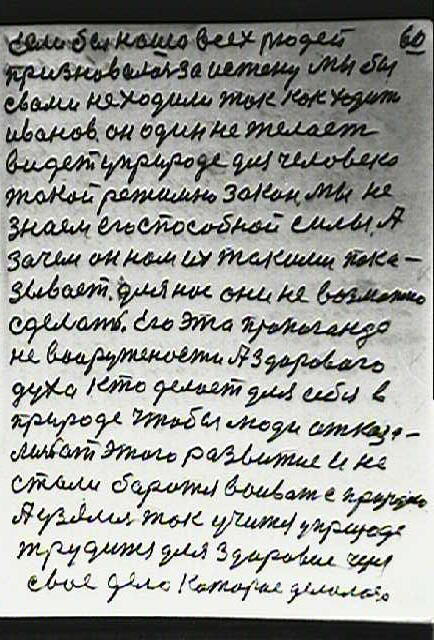 если бы наша всех людей 60
признавалась за истену мы бы
свами не ходили так как ходит
иванов, он один не желает
видет уприроде для человека
такой режимно закон, мы не
знаем его способной силы, А
зачем он нам их такими пока-
зывает, для нас они не возможно
сделать. Его эта пропаганда
не вооружености А здорового
духа кто делает для себя в
природе чтобы люди отказа-
лись от этого развитие и не
стали боротся воиват с природо
А узялись так учится уприроде
трудится для здоровие через
свое дело которое делалось